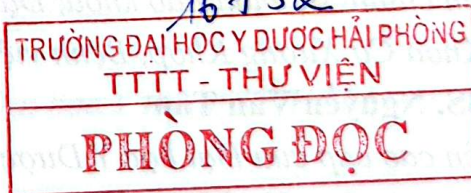 TRƯỜNG ĐẠI HỌC Y DƯỢC HẢI PHÒNG
TTTT - THƯ VIỆN
PHÒNG ĐỌC